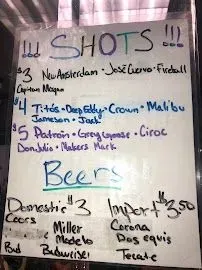 !!! SHOTS !!!
$3 New Amsterdam · José Cuervo · Fireball
Captain Morgan
$4 Tito's · Deep Eddy · Crown · Malibu
Jameson · Jack
$5 Patron · Grey Goose · Ciroc
Don Julio · Makers Mark
Beers
Domestic $3 Import $3.50
Coors Miller Corona
Modelo Dos equis
Bud Budweiser Tecate